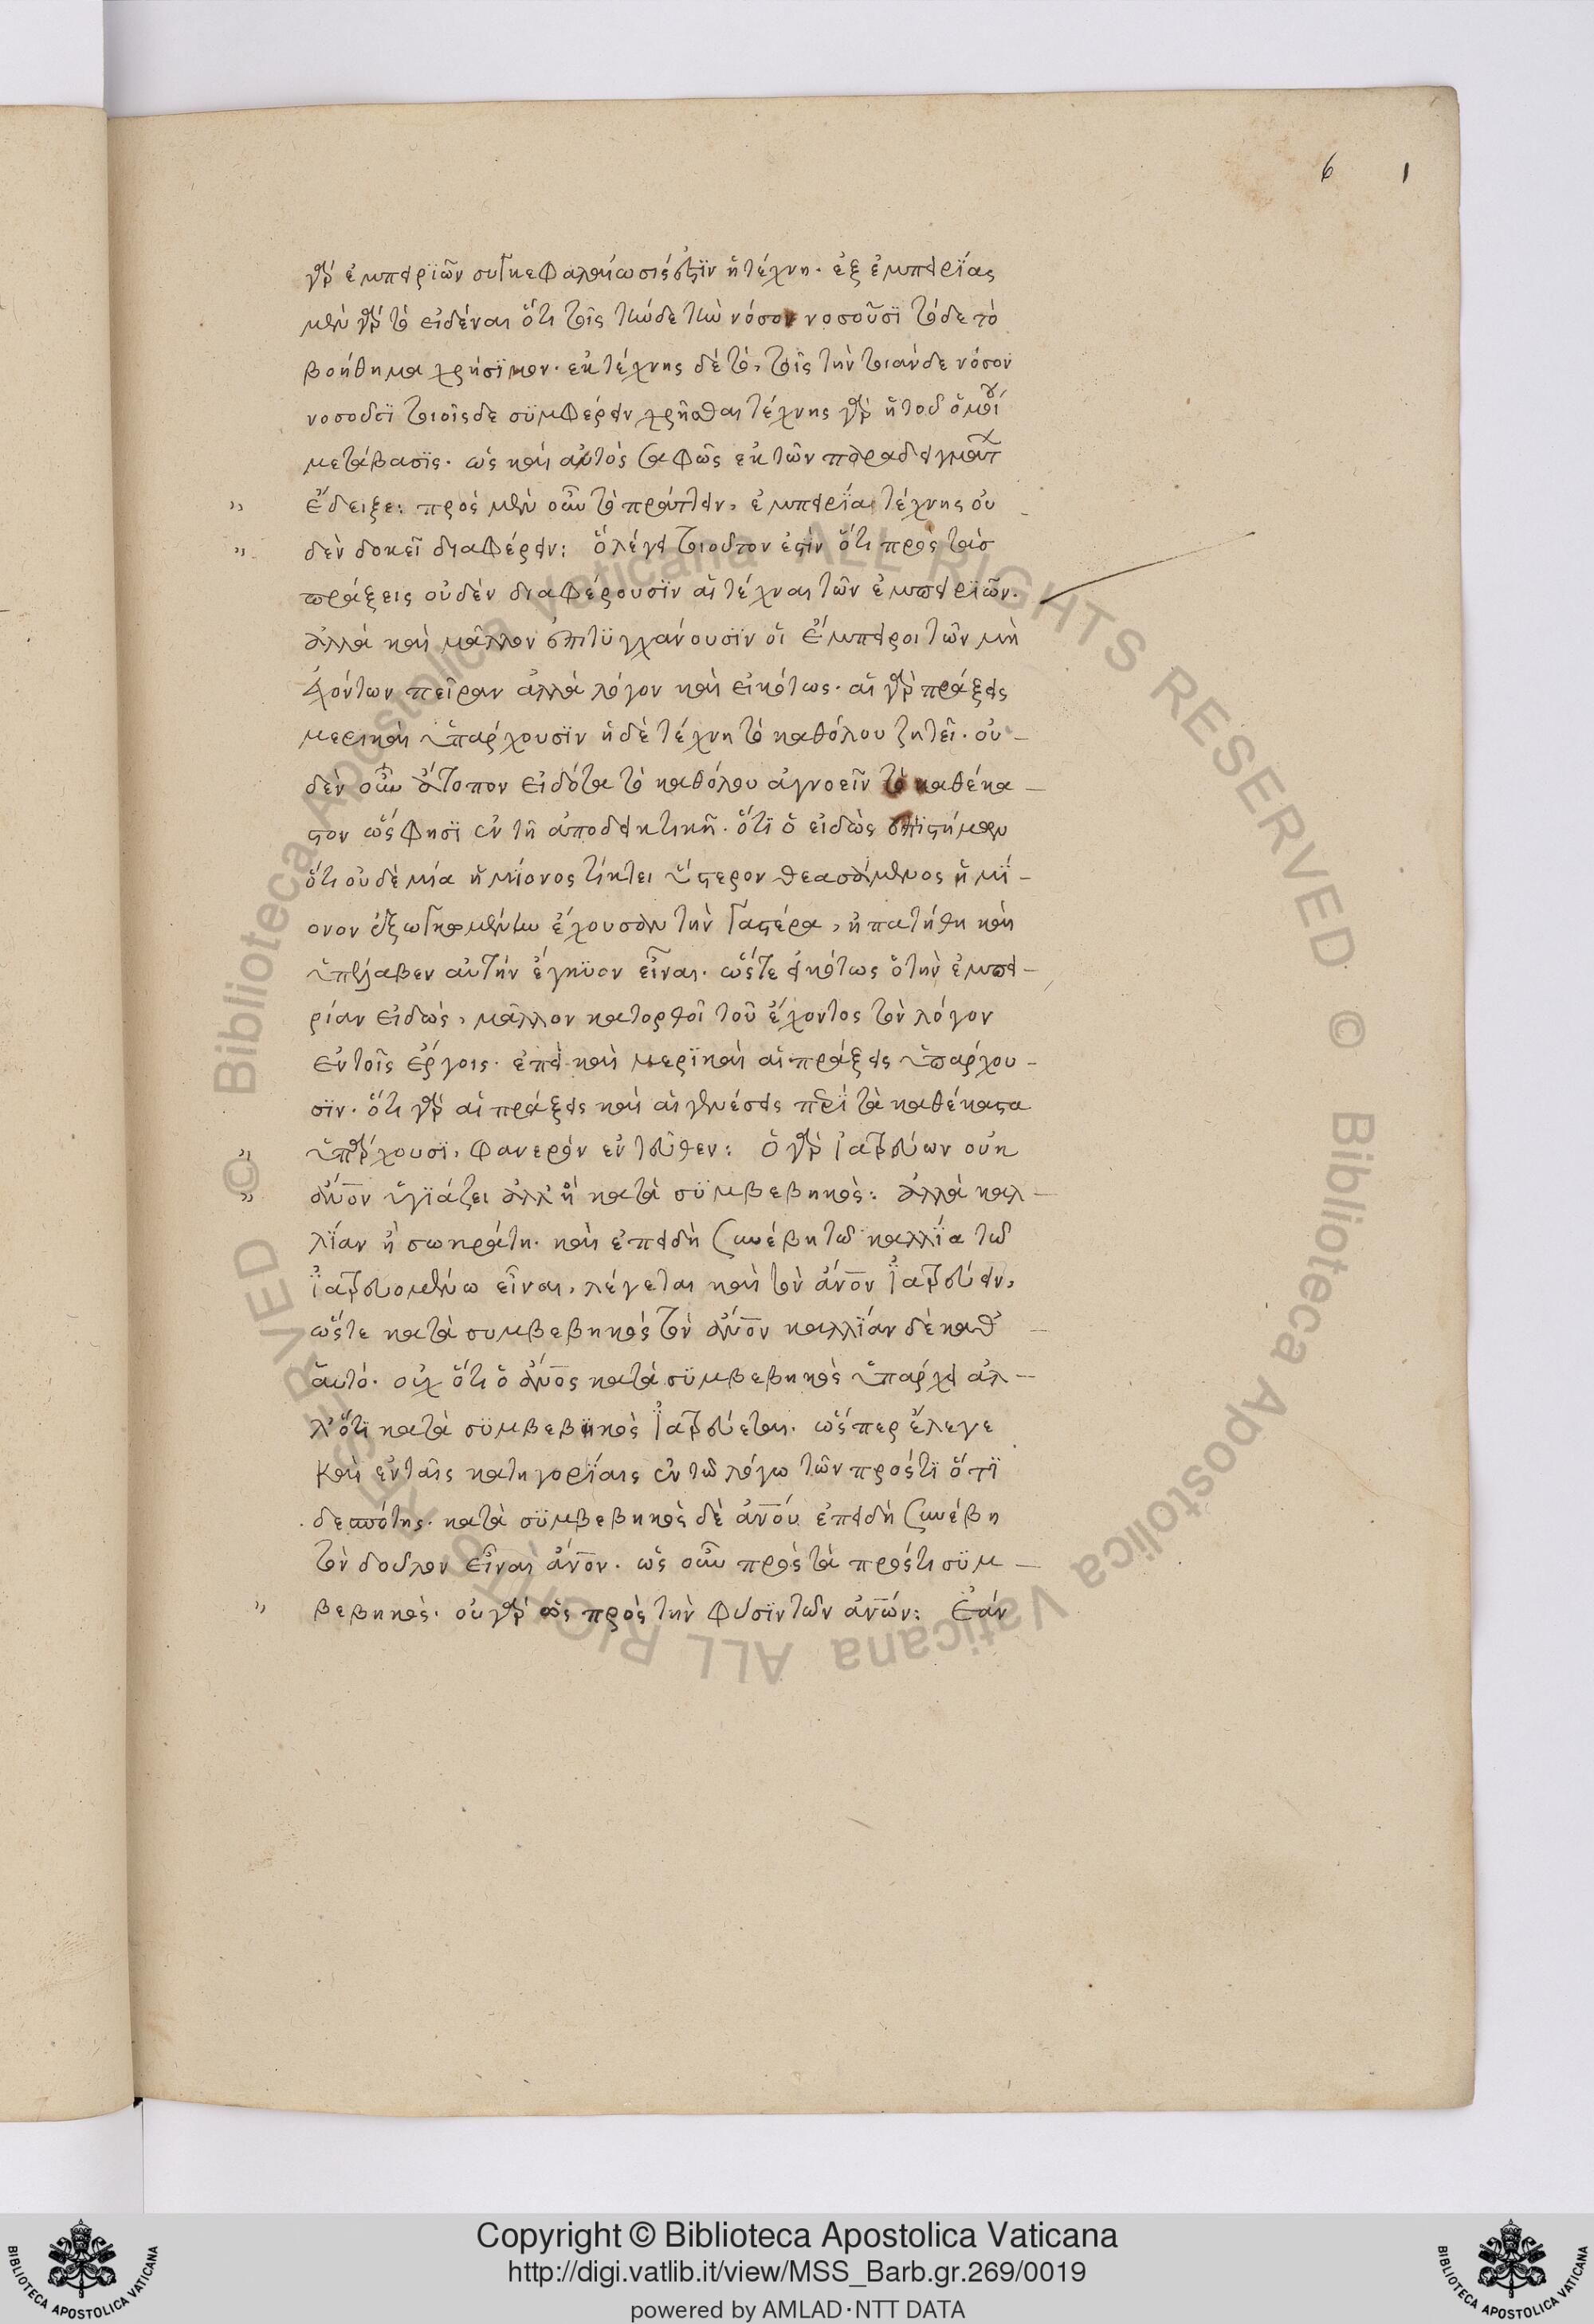 6 1
γὰρ ἐμπειρϊῶν συγκεφαλαίωσίς ἐστϊν ἡ τέχνη· ἐξ ἐμπειρΐας
μὲν γὰρ τὸ εἰδέναι ὅτι τοῖς τήνδε τὴν νόσον νοσοῦσϊ τόδε τὸ
βοήθημα χρήσϊμον· ἐκ τέχνης δὲ τὸ, τοῖς τὴν τοιάνδε νόσον
νοσοῦσϊ τοιοῖςδε συμφέρειν χρῆσθαι τέχνης γὰρ ἡ τοῦ ὁμοίου
μετάβασϊς· ὡς καὶ αὐτὸς σαφῶς ἐκ τῶν παραδειγμάτων
" ἔδειξε: πρὸς μὲν οὖν τὸ πράττειν, ἐμπειρΐα τέχνης οὐ
" δὲν δοκεῖ διαφέρειν: ὃ λέγει τοιοῦτον ἐστὶν ὅτι πρὸς τὰσ
πράξεις οὐδὲν διαφέρουσϊν αἱ τέχναι τῶν ἐμπειρϊῶν.
ἀλλὰ καὶ μᾶλλον ἐπιτϋγχάνουσϊν οἱ ἔμπειροι τῶν μὴ
ἐχόντων πεῖραν ἀλλὰ λόγον καὶ εἰκότως· αἱ γὰρ πράξεις
μερικαὶ ὑπάρχουσϊν ἡ δὲ τέχνη τὸ καθόλου ζητεῖ· οὐ-
δὲν οὖν ἄτοπον εἰδότα τὸ καθόλου ἀγνοεῖν τὸ καθέκα-
στον ὥς φησϊ ἐν τῇ ἀποδεικτικῇ· ὅτϊ ὁ εἰδὼς ἐπιστήμην
ὅτι οὐδὲ μία ἡμίονος τίκτει ὕστερον θεασάμενος ἡμί-
ονον ἐξωγκωμένην ἔχουσαν τὴν γαστέρα, ἠπατήθη καὶ
ὑπέλαβεν αὐτήν ἔγκϋον εἶναι· ὥστε εἰκότως ὁ τὴν ἐμπει-
ρίαν εἰδὼς, μᾶλλον κατορθοῖ τοῦ ἔχοντος τὸν λόγον
ἐν τοῖς ἔργοις· ἐπεὶ καὶ μερϊκαὶ αἱ πράξεις ὑπάρχου-
σϊν· ὅτι γὰρ αἱ πράξεις καὶ αἱ γενέσεις περὶ τὰ καθέκαστα
" ὑπάρχουσϊ, φανερὸν ἐντεῦθεν: ὁ γὰρ ἰατρεύων οὐκ
" ἄνον ὑγϊάζει ἀλλ' ἢ κατὰ σϋμβεβηκὸς: ἀλλὰ καλ-
λΐαν ἢ σωκράτη· καὶ ἐπειδὴ συνέβη τῶ καλλΐα τῶ
ἰατρευομένω εἶναι, λέγεται καὶ τὸν ἄνον ἰατρεύειν,
ὥστε κατὰ συμβεβηκὸς τὸν ἄνον καλλΐαν δὲ καθ' -
ἁυτό· οὐχ ὅτι ὁ ἄνος κατὰ σϋμβεβηκὸς ὑπάρχει ἀλ-
λ' ὅτϊ κατὰ σϋμβεβϊκὸς ἰατρεύεται· ὥσπερ ἔλεγε
καὶ ἐν ταῖς κατηγορΐαις ἐν τῶ λόγω τῶν προστϊ ὅτϊ
δεσπότης· κατὰ σϋμβεβηκὸς δὲ ἀνου ἐπειδὴ συνέβη
τὸν δοῦλον εἶναι ἄνον· ὡς οὖν πρὸς τὰ πρόστι σϋμ-
" βεβηκὸς· οὐ γὰρ ὡς πρὸς τὴν φύσϊν τῶν ἀνων: Ἐὰν
Copyright © Biblioteca Apostolica Vaticana
http://digi.vatlib.it/view/MSS_Barb.gr.269/0019
powered by AMLAD·NTT DATA
BIBLIOTECA APOSTOLICA VATICANA
BIBLIOTECA APOSTOLICA VATICANA
© Biblioteca Apostolica Vaticana ALL RIGHTS RESERVED © Biblioteca Apostolica Vaticana ALL RIGHTS RESERVED